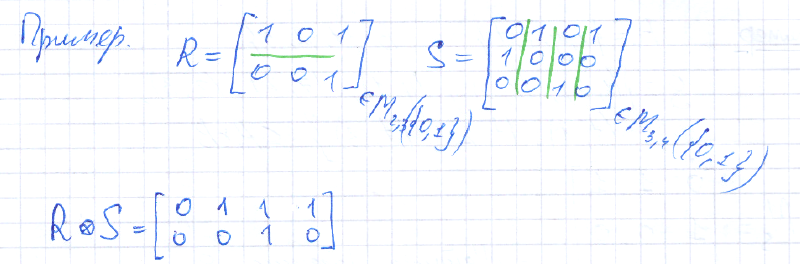 Пример. R = [1 0 1; 0 0 1] ∈ M₂,₃({0,1}) S = [0 1 0 1; 1 0 0 0; 0 0 1 0] ∈ M₃,₄({0,1})
R ⊗ S = [0 1 1 1; 0 0 1 0]